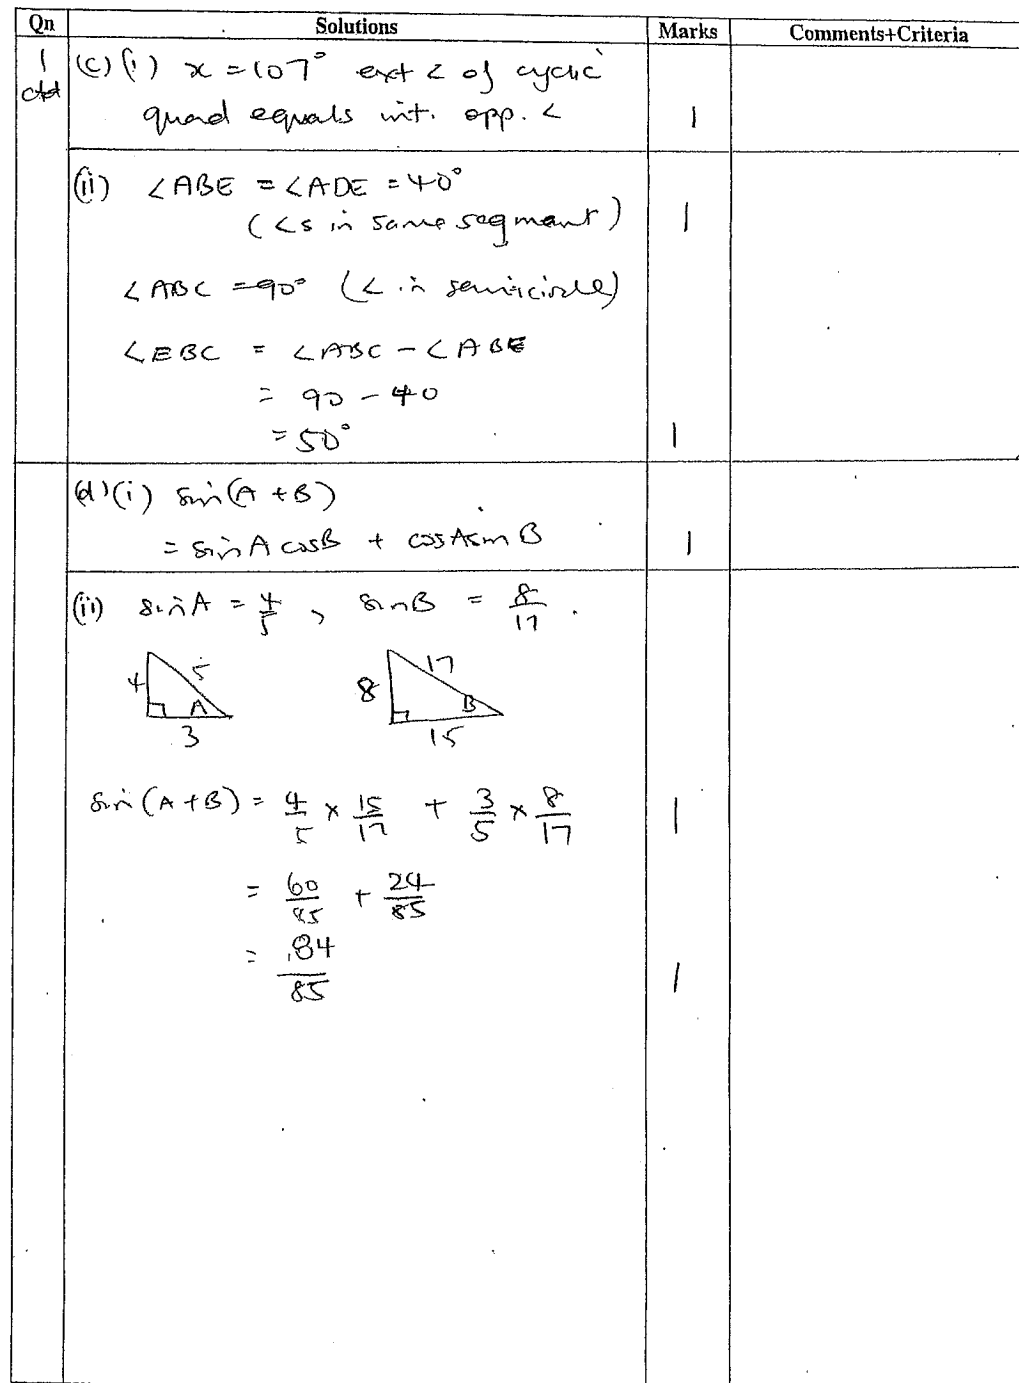 Qn Solutions Marks Comments+Criteria
1 (c) (i) x = 107° ext ∠ of cyclic
ctd quad equals int. opp. ∠ 1
(ii) ∠ABE = ∠ADE = 40°
(∠s in same segment) 1
∠ABC = 90° (∠ in semicircle)
∠EBC = ∠ABC - ∠ABE
= 90 - 40
= 50° 1
(d) (i) sin(A + B)
= sinA cosB + cosA sinB 1
(ii) sinA = 4/5, sinB = 8/17.
4 5 A 3
8 17 B 15
sin(A+B) = 4/5 × 15/17 + 3/5 × 8/17 1
= 60/85 + 24/85
= 84/85 1